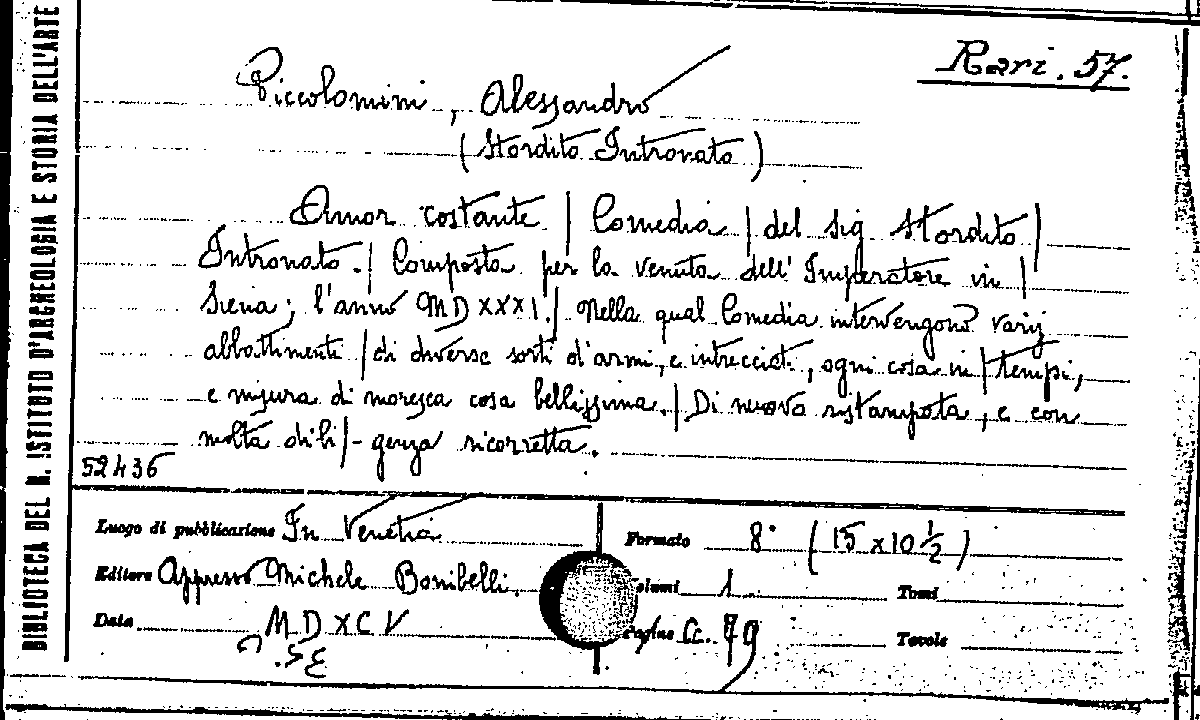 BIBLIOTECA DEL R. ISTITUTO D'ARCHEOLOGIA E STORIA DELL'ARTE
Rari. 57.
Piccolomini, Alessandro
(Stordito Intronato)
Amor costante | Comedia | del sig Stordito |
Intronato. | Composta per la venuta dell' Imperatore in |
Siena; l'anno MDXXXVI. | Nella qual Comedia intervengono varij
abbattimenti | di diverse sorti d'armi, e intrecciati, ogni cosa in | tempi,
e misura di moresca cosa bellissima. | Di nuovo ristampata, e con
molta dili | - genza ricorretta.
52436
Luogo di pubblicazione In Venetia
Formato 8° (15 x 10 1/2)
Editore Appresso Michele Bonibelli.
olumi 1
Tomi
Data MDXCV
Pagine Cc. 79
Tavole